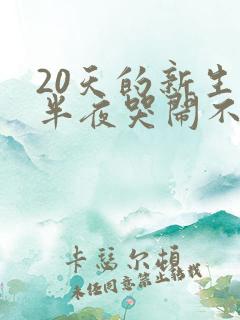 20天的新生
半夜哭闹不
卡瑟尔顿
未经同意禁止转载